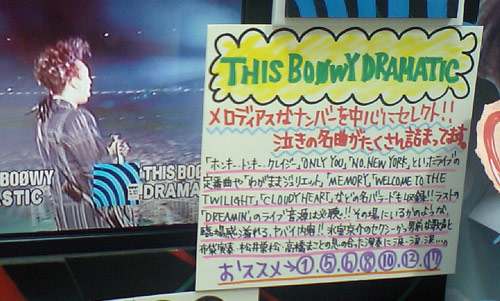 THIS BOØWY DRAMATIC
メロディアスなナンバーを中心にセレクト!!
泣きの名曲がたくさん詰まってます。
「ホンキートンキー・クレイジー」「ONLY YOU」「NO. NEW YORK」といったライブの
定番曲や「わがままジュリエット」「MEMORY」「WELCOME TO THE
TWILIGHT」「CLOUDY HEART」などの名バラードも収録!!ラストの
「DREAMIN'」のライブ音源は必聴!!その場にいるかのような
臨場感溢れる、ヤバイ内容!!氷室京介のセクシーかつ男前な歌声と
布袋寅泰・松井常松・高橋まことの息の合った演奏に涙・涙・涙…。
おススメ→①.⑤.⑥.⑧.⑩.⑫.⑰
BOØWY
STIC
THIS BO
DRAMA